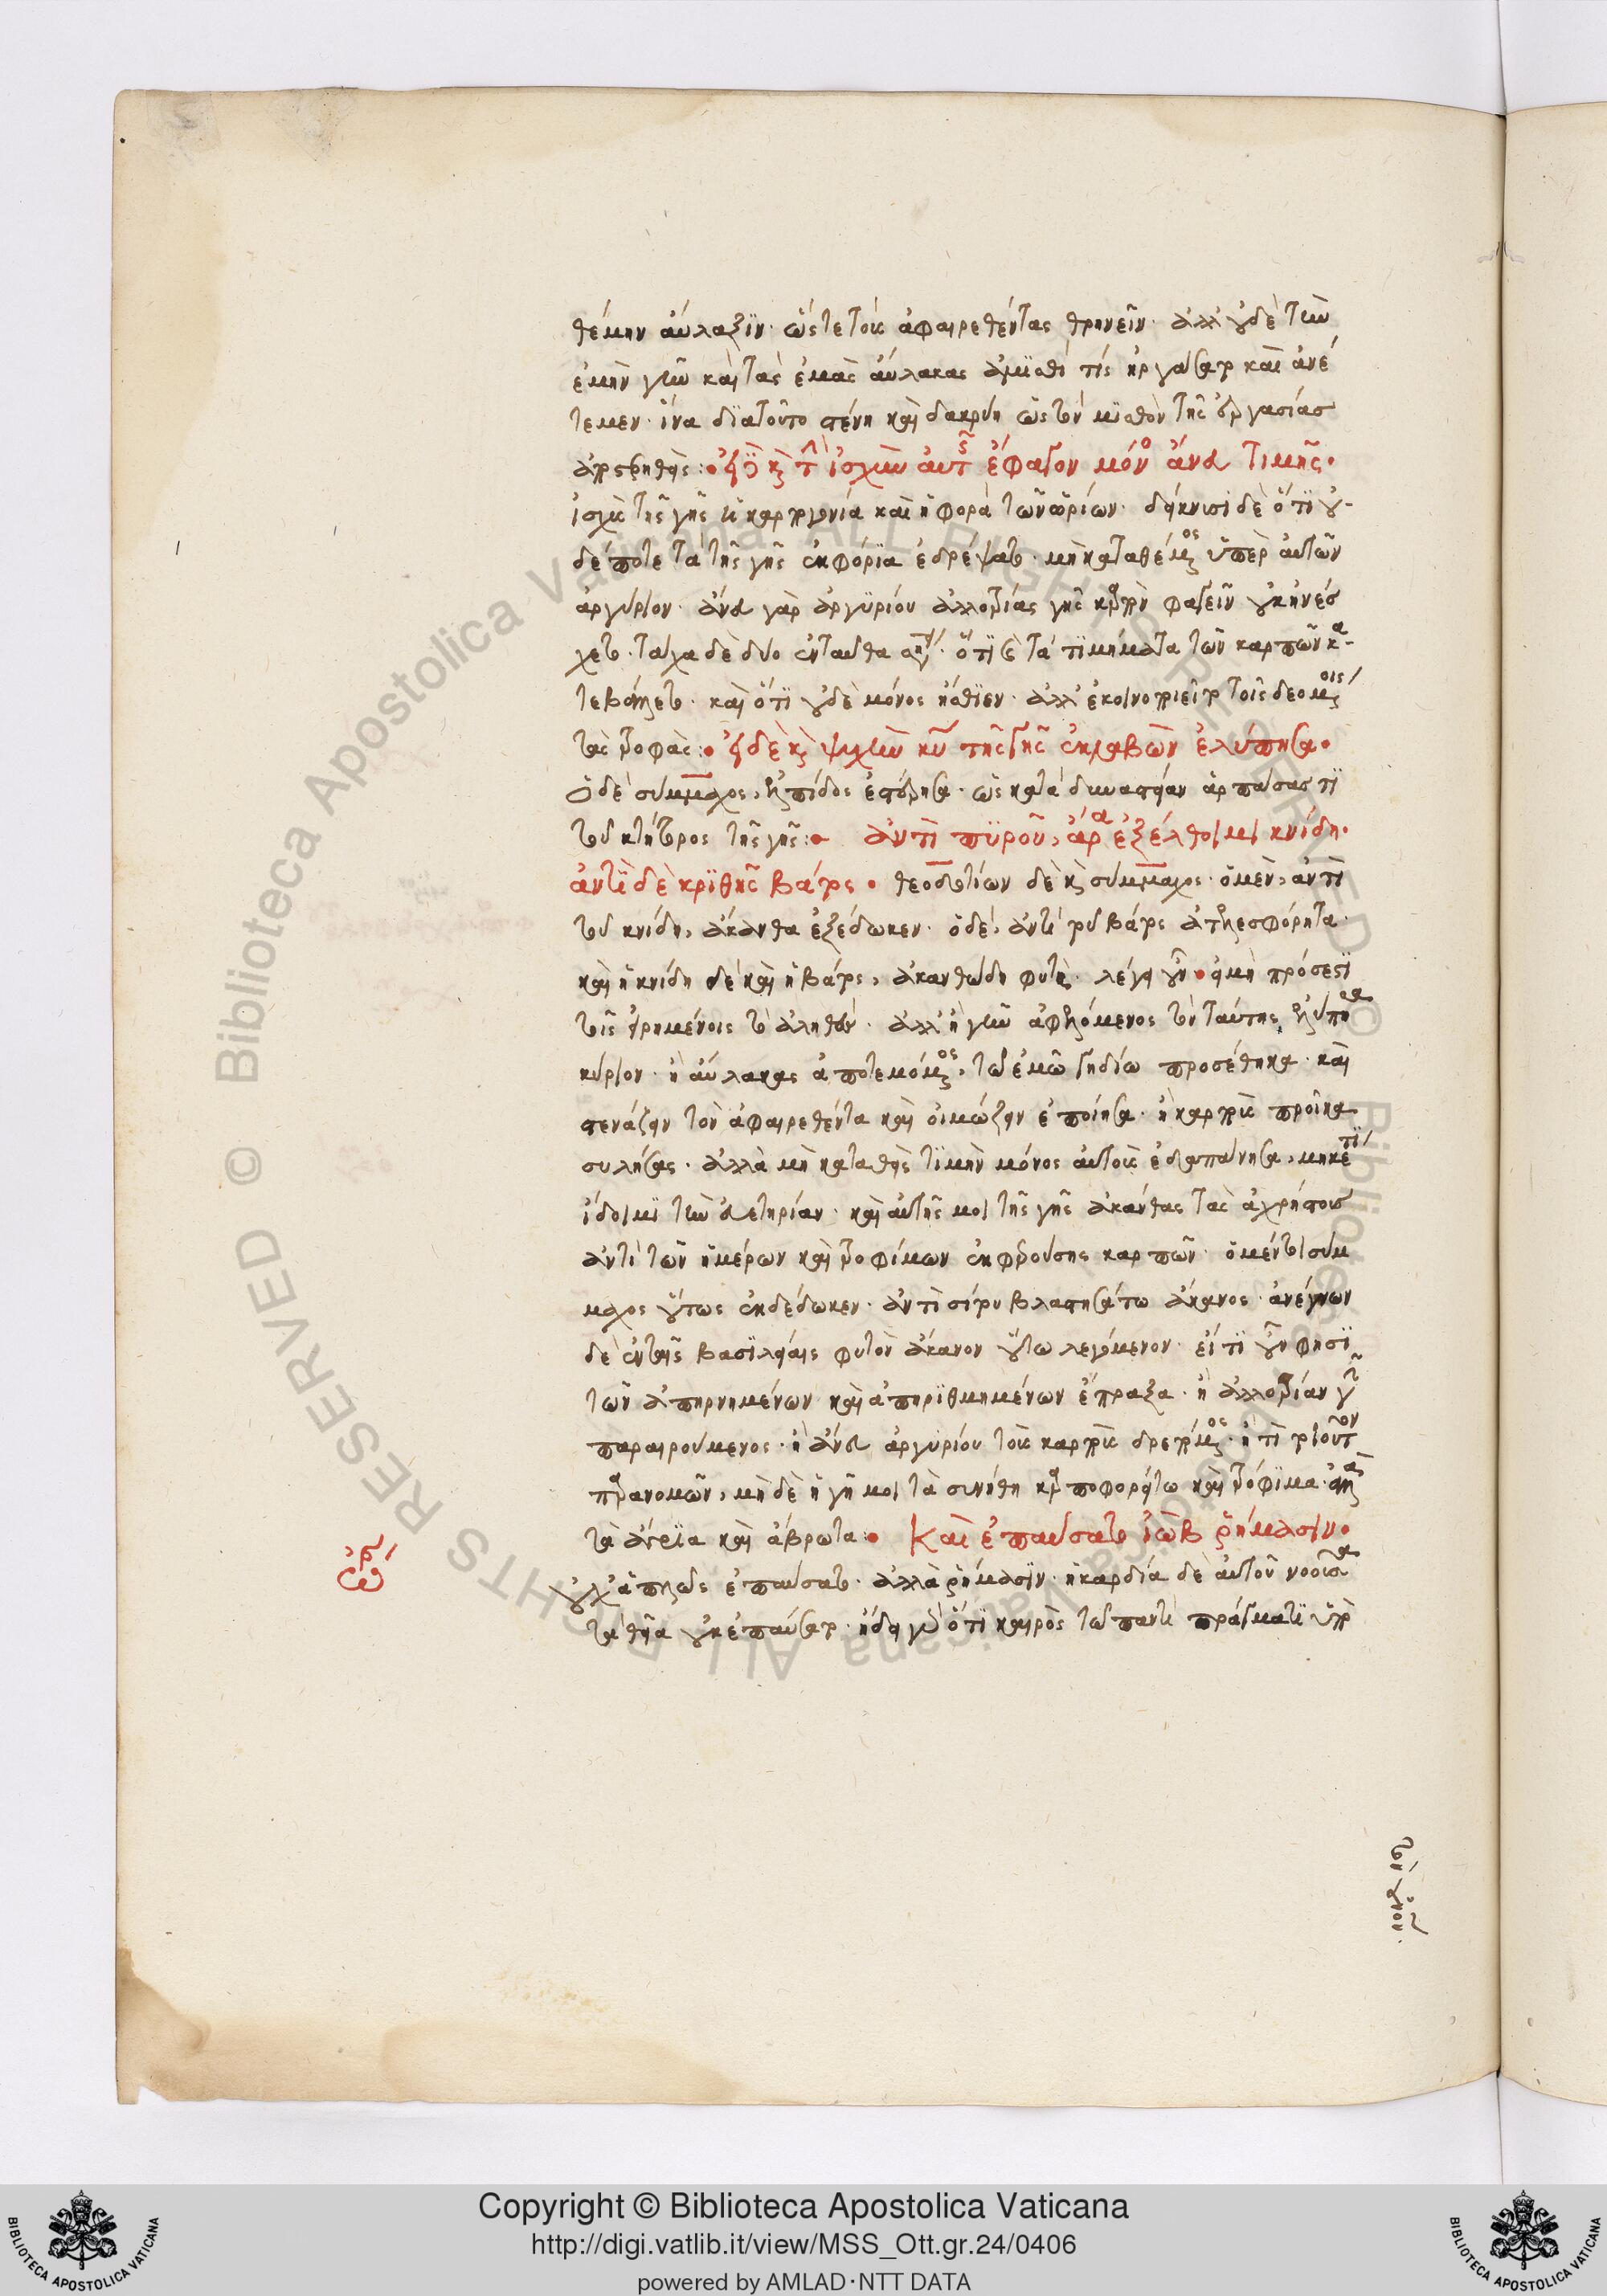 θέμην αὔλαξιν· ὥστε τοὺς ἀφαιρεθέντας θρηνεῖν· ἀλλ' οὐδὲ τὴν
ἐμὴν γῆν καὶ τὰς ἐμὰς αὔλακας ἀμισθί τις ἠργάσατο καὶ ἀνέ
τεμεν· ἵνα διατοῦτο στένη καὶ δακρύη ὡς τὸν μισθὸν τῆς ἐργασίας
ἀποστερηθείς: • εἰ δὲ καὶ τὴν ἰσχὺν αὐτῆς ἔφαγον μόνος ἄνευ τιμῆς •
ἰσχὺς τῆς γῆς ἡ καρπογονία καὶ ἡ φορὰ τῶν ὡρίων· δείκνυσι δὲ ὅτι οὐ-
δέποτε τὰ τῆς γῆς ἐκφόρια ἐδρέψατο· μὴ καταθέμενος ὑπὲρ αὐτῶν
ἀργύριον· ἄνευ γὰρ ἀργυρίου ἀλλοτρίας γῆς καρπὸν φαγεῖν οὐκ ἠνέσ
χετο· τάχα δὲ δύο ἐνταῦθα φησίν· ὅτι καὶ τὰ τιμήματα τῶν καρπῶν κα-
τεβάλλετο· καὶ ὅτι οὐδὲ μόνος ἤσθιεν· ἀλλ' ἐκοινοποιεῖτο τοῖς δεομένοις
τὰς τροφάς: • εἰ δὲ καὶ ψυχὴν κυρίου τῆς γῆς ἐκλαβὼν ἐλύπησα •
ὁ δὲ σύμμαχος, ἐλπίδος ἐστέρησα· ὡς κατὰ δυναστείαν ἁρπάσας τι
τοῦ κτήτορος τῆς γῆς: • ἀντὶ πυροῦ, ἄρα ἐξέλθοι μοι κνίδη •
ἀντὶ δὲ κριθῆς βάτος • θεοδοτίων δὲ καὶ σύμμαχος· ὁ μὲν, ἀντὶ
τοῦ κνίδη, ἄκανθα ἐξέδωκεν· ὁ δὲ, ἀντὶ τοῦ βάτος ἀτελεσφόρητα·
καὶ ἡ κνίδη δὲ καὶ ἡ βάτος, ἀκανθώδη φυτά· λέγει οὖν • εἰ μὴ πρόσεστι
τοῖς εἰρημένοις τὸ ἀληθές· ἀλλ' ἢ γῆν ἀφελόμενος τὸν ταύτης ἐλύπησα
κύριον· ἢ αὔλακας ἀποτεμόμενος, τῷ ἐμῷ γηδίῳ προσέθηκα· καὶ
στενάζειν τὸν ἀφαιρεθέντα καὶ οἰμώζειν ἐποίησα· ἢ καρποὺς προῖκα
συλήσας· ἀλλὰ μὴ καταθεὶς τιμὴν μόνος αὐτοὺς ἐδαπάνησα, μηκέτι
ἴδοιμι τὴν εὐετηρίαν· καὶ αὐτῆς μοι τῆς γῆς ἀκάνθας τὰς ἀχρήστους
ἀντὶ τῶν ἡμέρων καὶ τροφίμων ἐκφερούσης καρπῶν· ὁ μέντοι σύμ
μαχος οὕτως ἐκδέδωκεν· ἀντὶ σίτου βλαστησάτω ἄκανος· ἀνέγνων
δὲ ἐν ταῖς βασιλείαις φυτὸν ἄκανον οὕτω λεγόμενον· εἴ τι οὖν φησὶ
τῶν ἀπηρνημένων καὶ ἀπηριθμημένων ἔπραξα· ἢ ἀλλοτρίαν γῆν
παραιρούμενος· ἢ ἄνευ ἀργυρίου τοὺς καρποὺς δρεπόμενος· ἤ τι τοιοῦτον
παρανομῶν, μὴ δὲ ἡ γῆ μοι τὰ συνήθη καρποφορείτω καὶ τρόφιμα· ἀλλὰ
τὰ ἄγρια καὶ ἄβρωτα: • Καὶ ἐπαύσατο ἰὼβ ῥήμασιν •
οὐχ' ἁπλῶς ἐπαύσατο· ἀλλὰ ῥήμασιν· ἡ καρδία δὲ αὐτοῦ νοοῦσα
τὰ θεῖα οὐκ ἐπαύσατο· ἤδει γὰρ ὅτι καιρὸς τῷ παντὶ πράγματι ὑπὸ